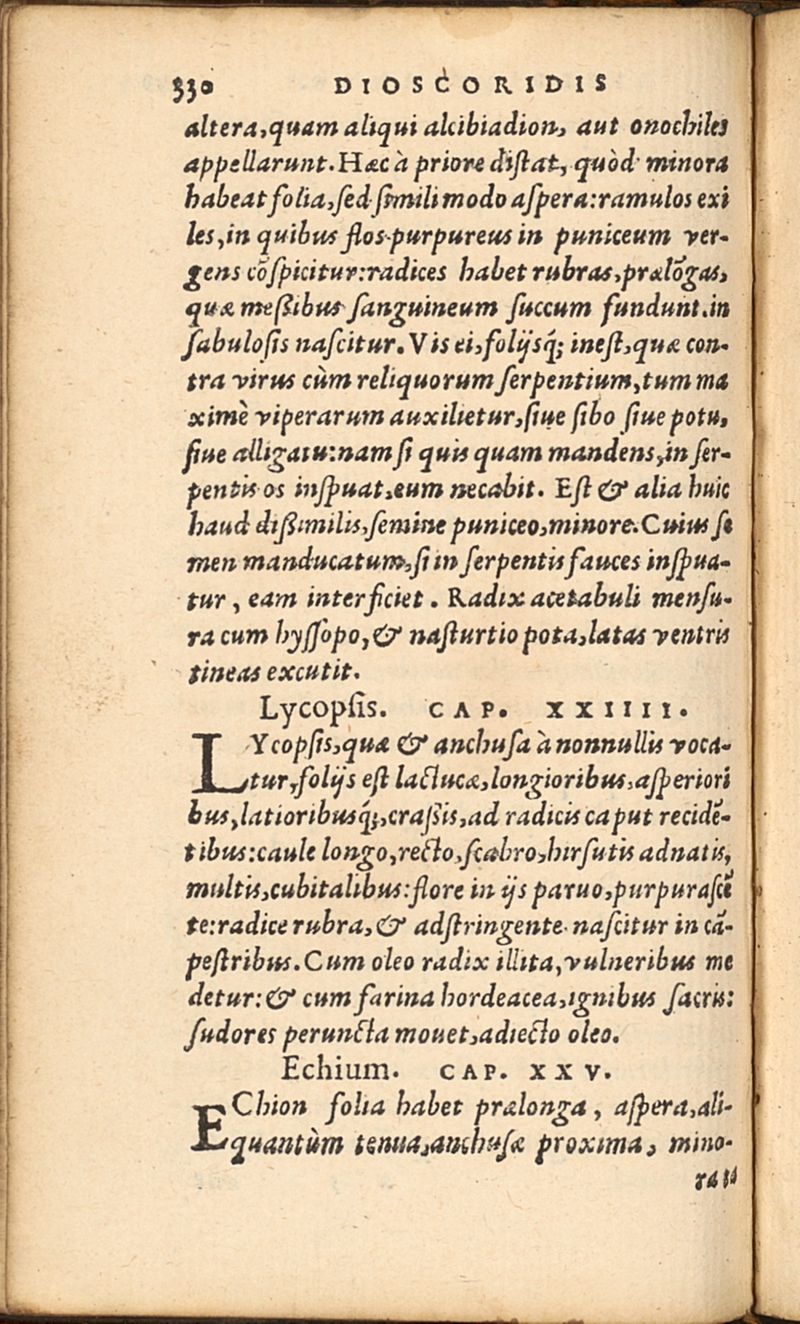 330 DIOSCORIDIS
altera, quam aliqui alcibiadion, aut onochiles
appellarunt. Hæc à priore distat, quòd minora
habeat folia, sed simili modo aspera: ramulos exi
les, in quibus flos purpureus in puniceum ver-
gens cōspicitur: radices habet rubras, prælōgas,
quæ messibus sanguineum succum fundunt. in
sabulosis nascitur. Vis ei, folijsq́; inest, quæ con-
tra virus cùm reliquorum serpentium, tum ma
ximè viperarum auxilietur, siue sibo siue potu,
siue alligatu: nam si quis quam mandens, in ser-
pentis os inspuat, eum necabit. Est & alia huic
haud dissimilis, semine puniceo, minore. Cuius se
men manducatum, si in serpentis fauces inspua-
tur, eam interficiet. Radix acetabuli mensu-
ra cum hyssopo, & nasturtio pota, latas ventris
tineas excutit.
Lycopsis. CAP. XXIIII.
LYcopsis, quæ & anchusa à nonnullis voca-
tur, folijs est lactucæ, longioribus, asperiori
bus, latioribusq́;, crassis, ad radicis caput recidē-
tibus: caule longo, recto, scabro, hirsutis adnatis,
multis, cubitalibus: flore in ijs paruo, purpurascē
te: radice rubra, & adstringente. nascitur in cā-
pestribus. Cum oleo radix illita, vulneribus me
detur: & cum farina hordeacea, ignibus sacris:
sudores peruncta mouet, adiecto oleo.
Echium. CAP. XXV.
EChion folia habet prælonga, aspera, ali-
quantùm tenua, anchusæ proxima, mino-